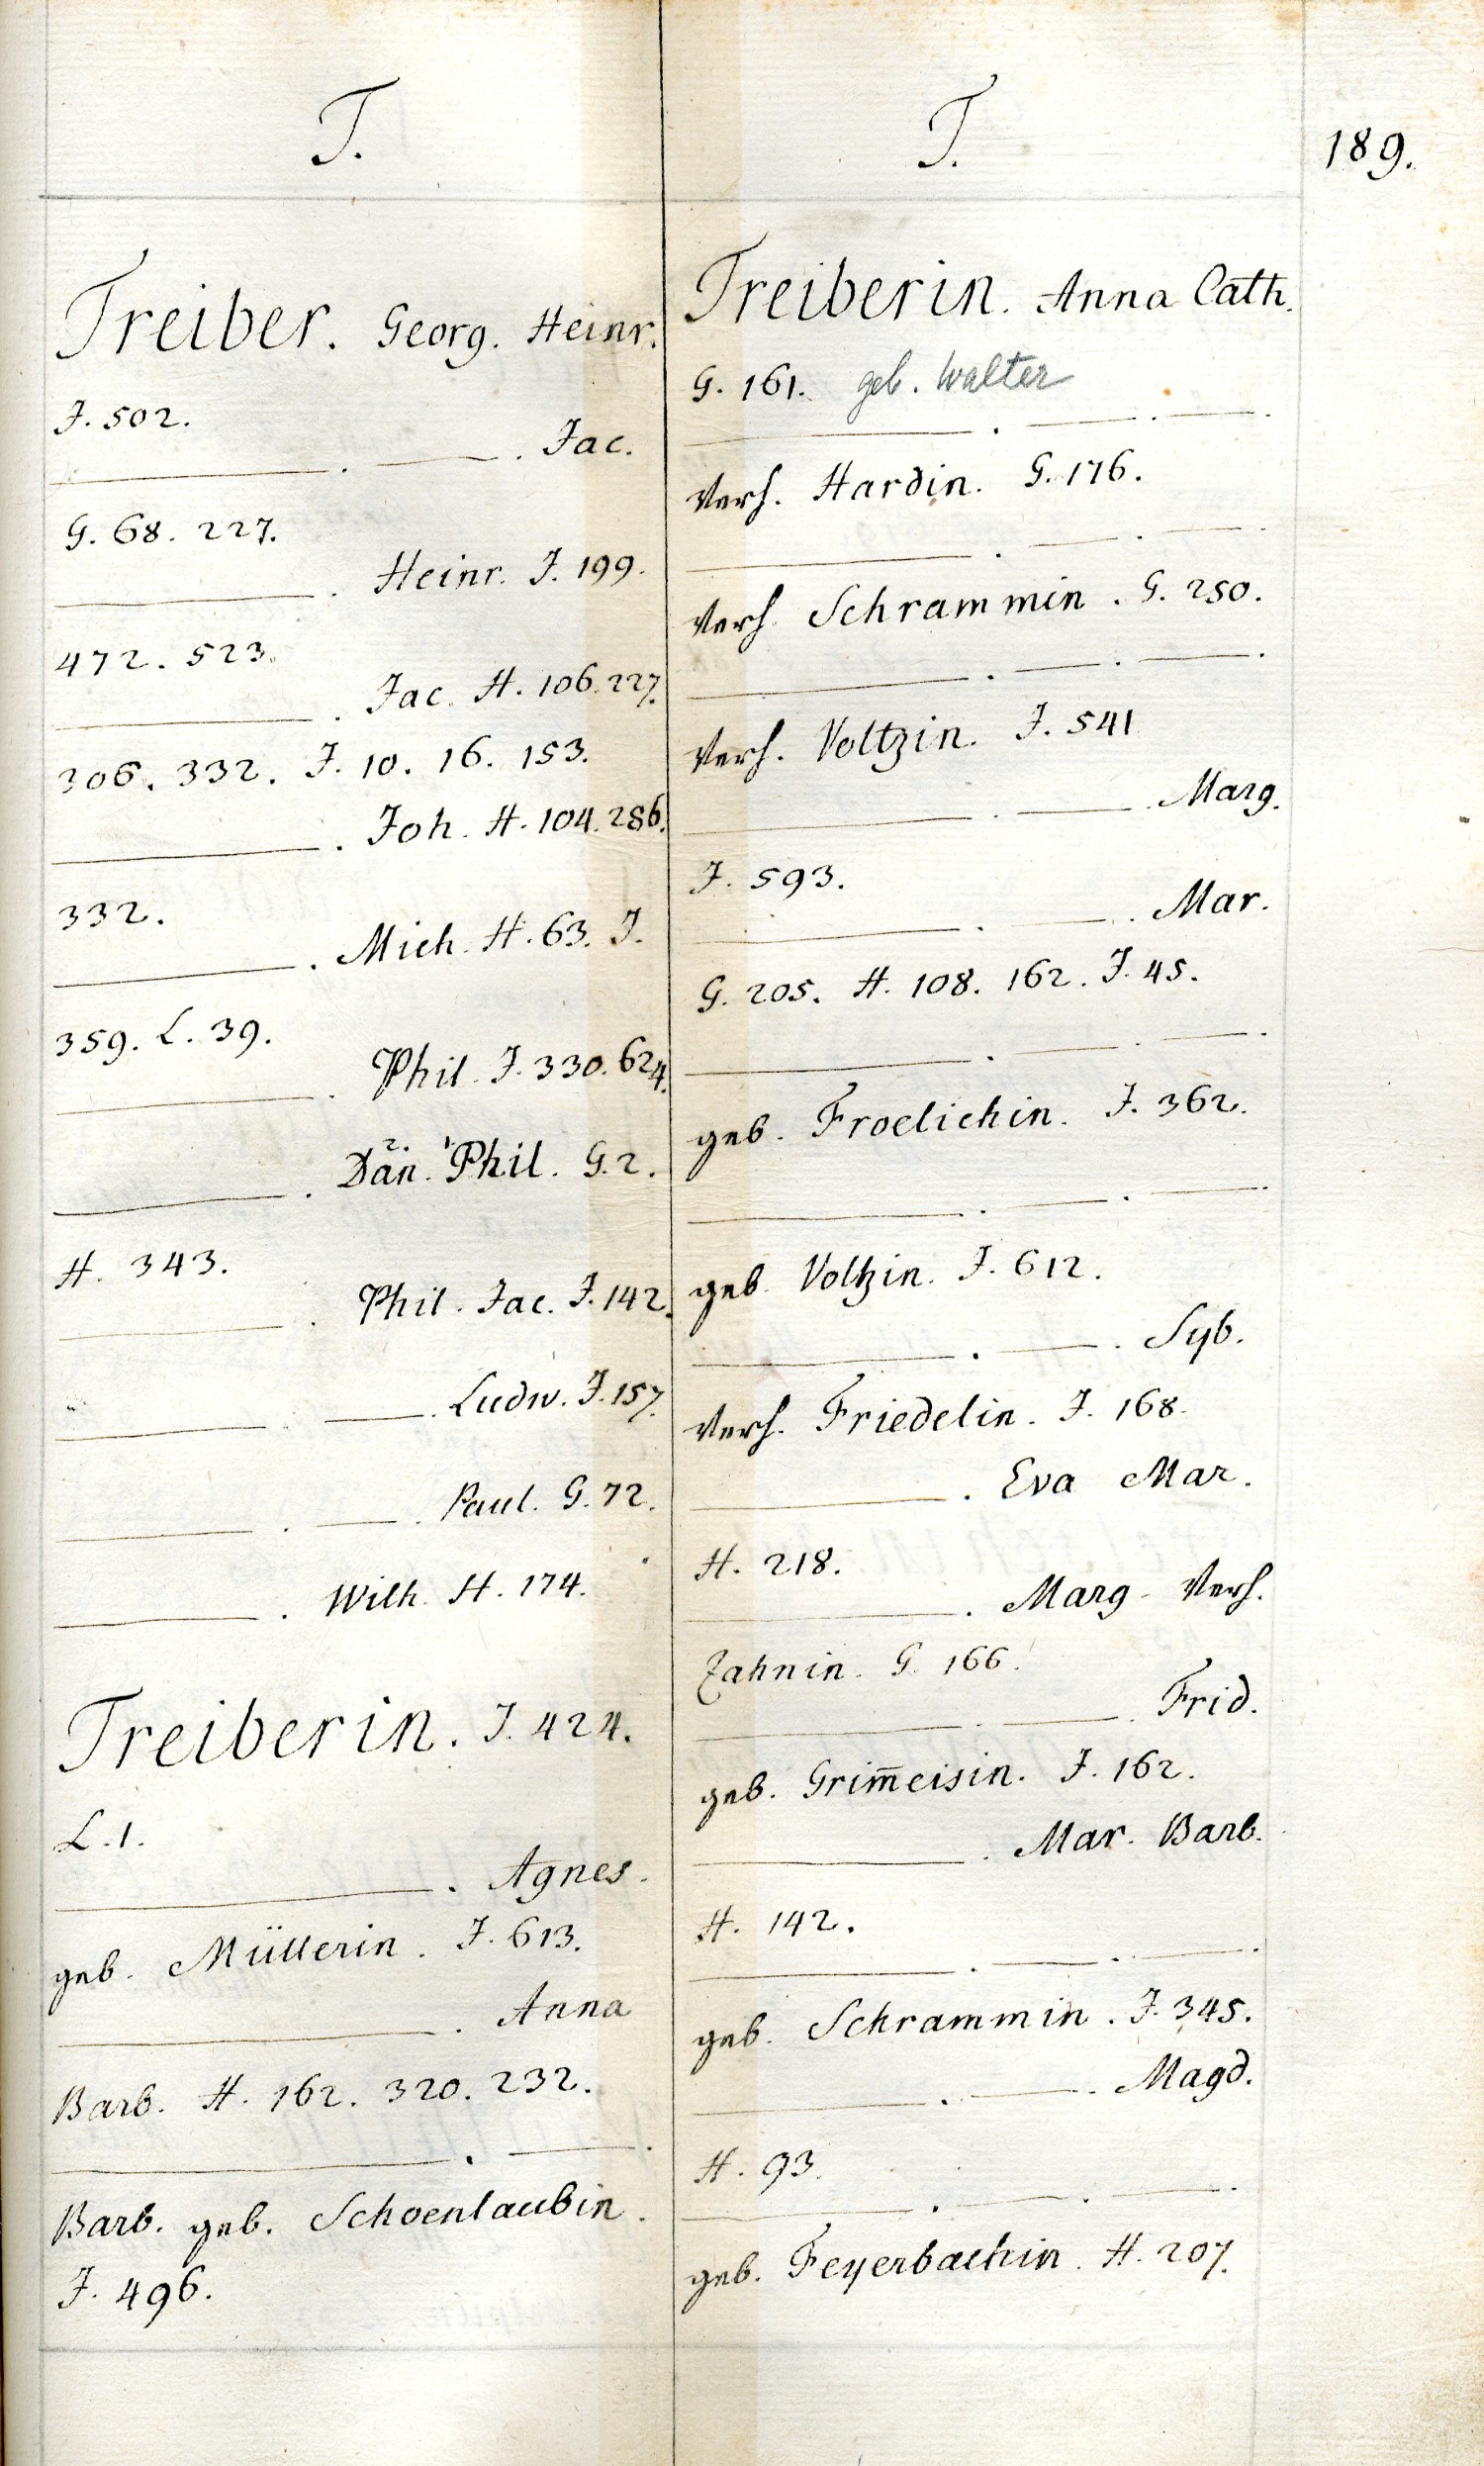 T.
Treiber. Georg. Heinr.
J. 502.
———. ———. Jac.
G. 68. 227.
———. Heinr. J. 199.
472. 523.
———. Jac. H. 106. 227.
306. 332. J. 10. 16. 153.
———. Joh. H. 104. 286.
332.
———. Mich. H. 63. J.
359. L. 39.
———. Phil. J. 330. 624.
———. Dan. Phil. G. 2.
H. 343.
———. Phil. Jac. J. 142.
———. ———. Ludw. J. 157.
———. ———. Paul. G. 72.
———. Wilh. H. 174.
Treiberin. J. 424.
L. 1.
———. Agnes.
geb. Müllerin. J. 613.
———. Anna
Barb. H. 162. 320. 232.
———. ———.
Barb. geb. Schoenlaubin.
J. 496.
T.
189.
Treiberin. Anna Cath.
G. 161. geb. Walter
———. ———. ———.
Verh. Hardin. G. 176.
———. ———. ———.
Verh. Schrammin. G. 250.
———. ———. ———.
Verh. Voltzin. J. 541
———. ———. Marg.
J. 593.
———. ———. Mar.
G. 205. H. 108. 162. J. 45.
———. ———. ———.
geb. Froelichin. J. 362.
———. ———. ———.
geb. Voltzin. J. 612.
———. ———. Syb.
Verh. Friedelin. J. 168.
———. Eva Mar.
H. 218.
———. Marg. Verh.
Zahnin. G. 166.
———. ———. Frid.
geb. Grim̄eisin. J. 162.
———. Mar. Barb.
H. 142.
———. ———. ———.
geb. Schrammin. J. 345.
———. ———. Magd.
H. 93.
———. ———. ———.
geb. Feyerbachin. H. 207.